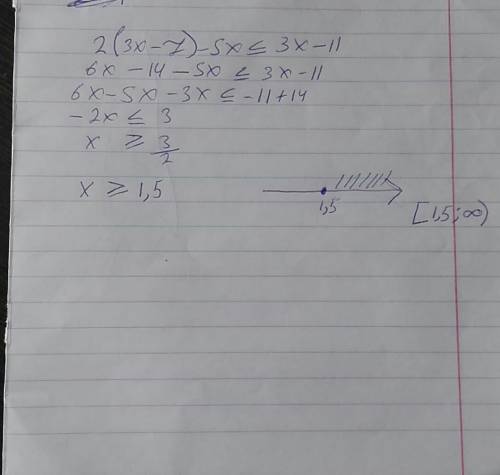 2(3x-7)-5x ≤ 3x-11
6x -14-5x ≤ 3x-11
6x-5x-3x ≤ -11+14
-2x ≤ 3
x ≥ 3/2
x ≥ 1,5
1,5
[1,5;∞)